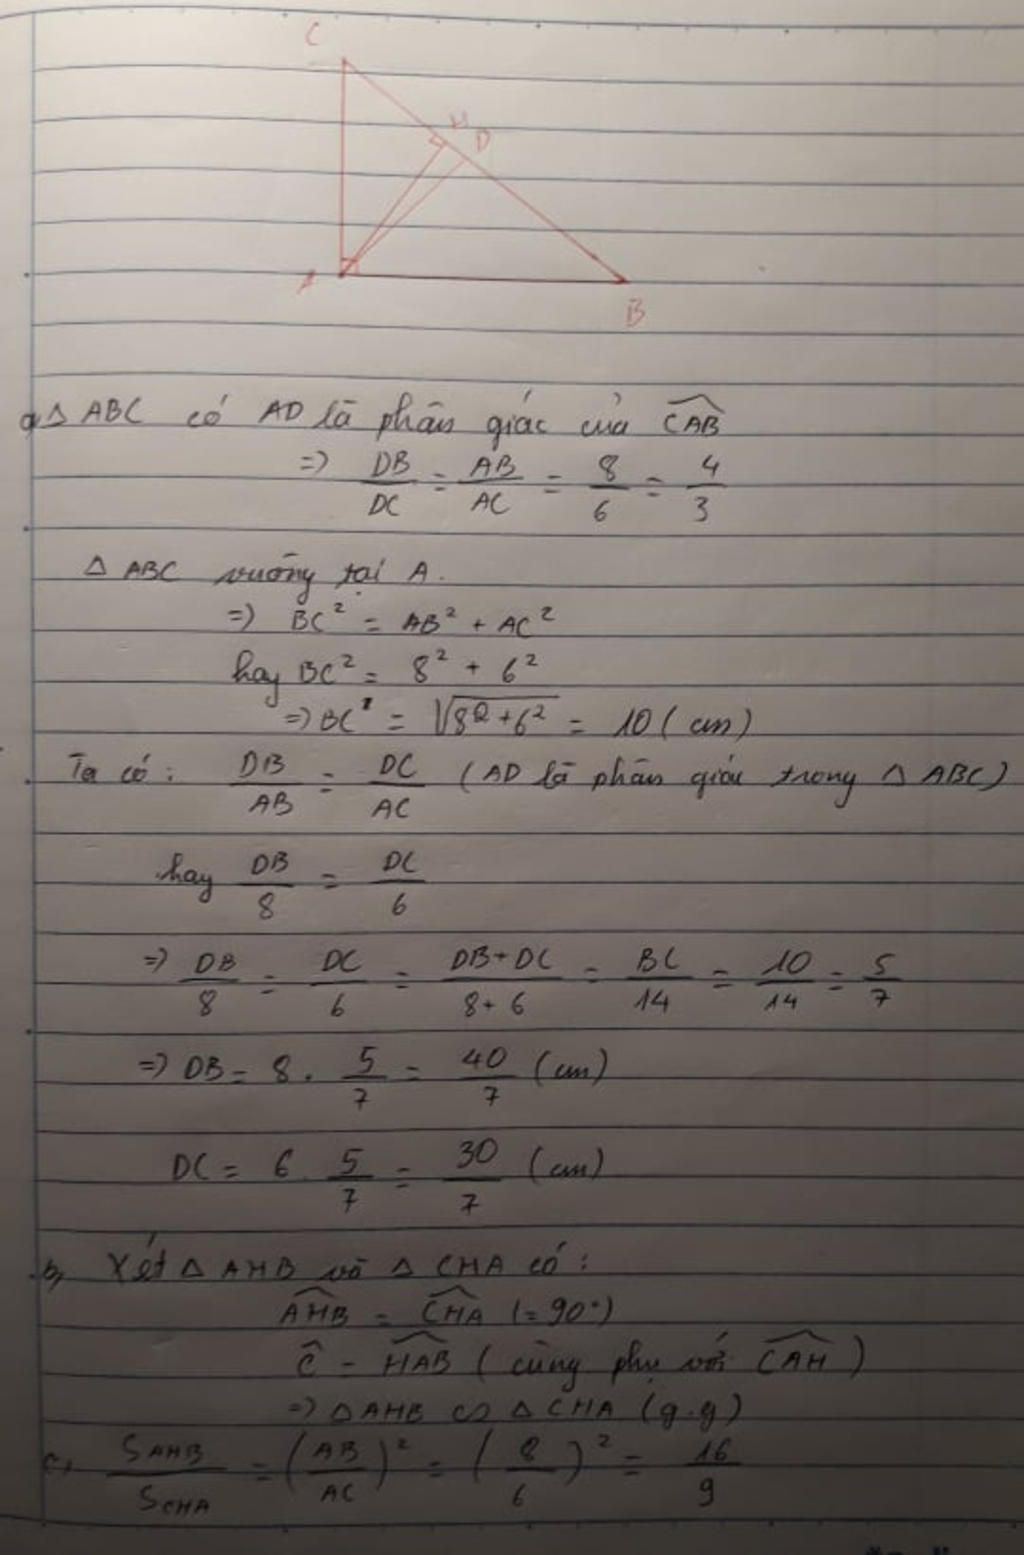 C
H
D
A
B
a, Δ ABC có AD là phân giác của \widehat{CAB}
=> DB/DC = AB/AC = 8/6 = 4/3
Δ ABC vuông tại A.
=> BC² = AB² + AC²
hay BC² = 8² + 6²
=> BC = √(8² + 6²) = 10 (cm)
Ta có: DB/AB = DC/AC (AD là phân giác trong Δ ABC)
hay DB/8 = DC/6
=> DB/8 = DC/6 = DB+DC/8+6 = BC/14 = 10/14 = 5/7
=> DB = 8 . 5/7 = 40/7 (cm)
DC = 6 . 5/7 = 30/7 (cm)
b, Xét Δ AHB và Δ CHA có:
\widehat{AHB} = \widehat{CHA} (= 90°)
\widehat{C} = \widehat{HAB} (cùng phụ với \widehat{CAH})
=> Δ AHB ∽ Δ CHA (g.g)
c, S_{AHB}/S_{CHA} = (AB/AC)² = (8/6)² = 16/9